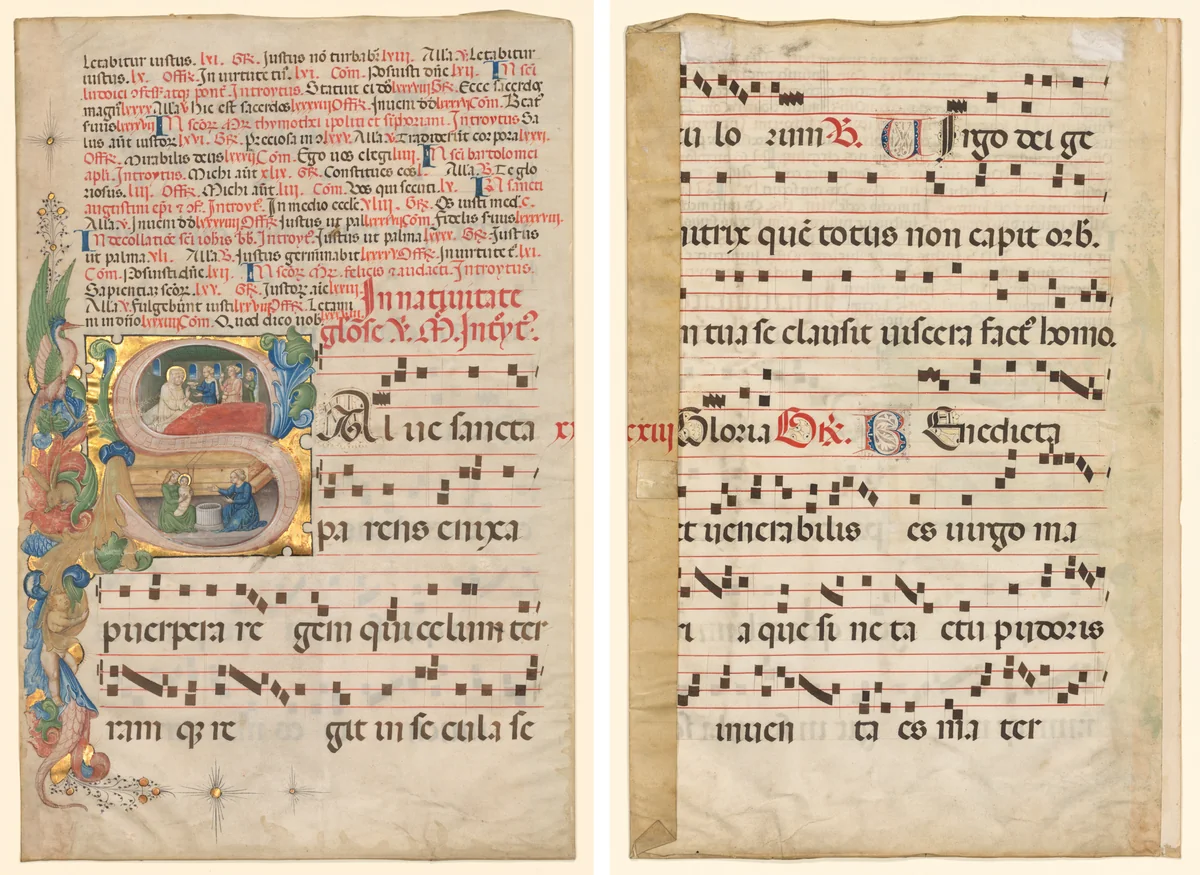 Letabitur iustus. lxi. Gr. Justus nō turbab̄ lviii. Alla. v̄. Letabitur
iustus. lx. Offr̄. In uirtute tū. lvi. Com. Posuisti dn̄e lvii. In sc̄i
ludoici ⁊ pont̄. Introytus. Statuit ei dō Gr̄. Ecce sacerdos
magn̄ Alla v̄ hic est sacerdos Offr̄. Inueni dd̄ Com. Beat̄
seruus In scōr̄. Mr̄. thymothei ipoliti et siphoriani. Introytus Sa
lus aūt iustor̄ lxvi. Gr̄. preciosa in ꝯ lxxv. Alla v̄. Tradiderūt corpora lxxxi.
Offr̄. Mirabilis deus lxxxii Com. Ego uos elegi liiii. In sc̄i bartolomei
apl̄i. Introytus. Michi aūt xlix. Gr̄. Constitues eos l. Alla. v̄. Te glo
riosus. liii. Offr̄. Michi aūt. liii. Com. Vos qui secuti. lx. In sancti
augustini ep̄i ⁊ Introyt̄. In medio eccl̄e xliii. Gr̄. Os iusti med̄. c.
Alla. v̄. Inueni dd̄ Offr̄ Justus ut pal̄ Com. Fidelis s̄uus
In decollatiōe sc̄i ioh̄is bb̄. Introyt̄. Justus ut palma lxxx. Gr̄. Justus
ut palma. xli. Alla. v̄. Justus germinabit Offr̄. In uirtute t̄. lxi.
Com. Posuisti dn̄e. lxii. In scōr̄. Mr̄. felicis ⁊ audacti. Introytus.
Sapientiaz scōr̄. lxx. Gr̄. Justor̄ aīe lxxiii. In natiuitate
Alla. v̄. Fulgebūnt iusti lxxvii Offr̄. Letami
ni in dn̄o lxxxiii Com. Quod dico uob̄ glōse v̄. M. Intr̄yt̄.
SAlue sancta
parens enixa
puerpera regem qui celum ter
ram q̄ regit in secula se
culorum R. Virgo dei ge
nitrix quē totus non capit orb̄.
In tua se clausit uiscera fact̄ homo.
xxiii Gloria Gr̄. BEnedicta
et uenerabilis es uirgo ma
ri a que sine tactu pudoris
inuenta es mater